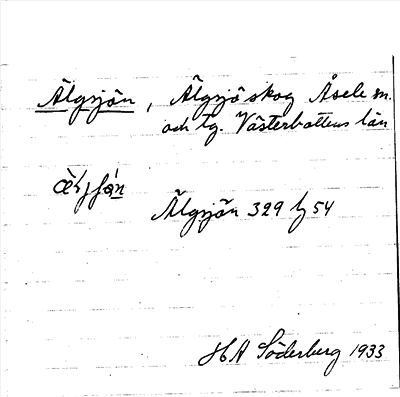 Älgsjön, Älgsjöskog Åsele sn.
och tg. Västerbottens län
Älgsjön 329 by 54
H A Söderberg 1933